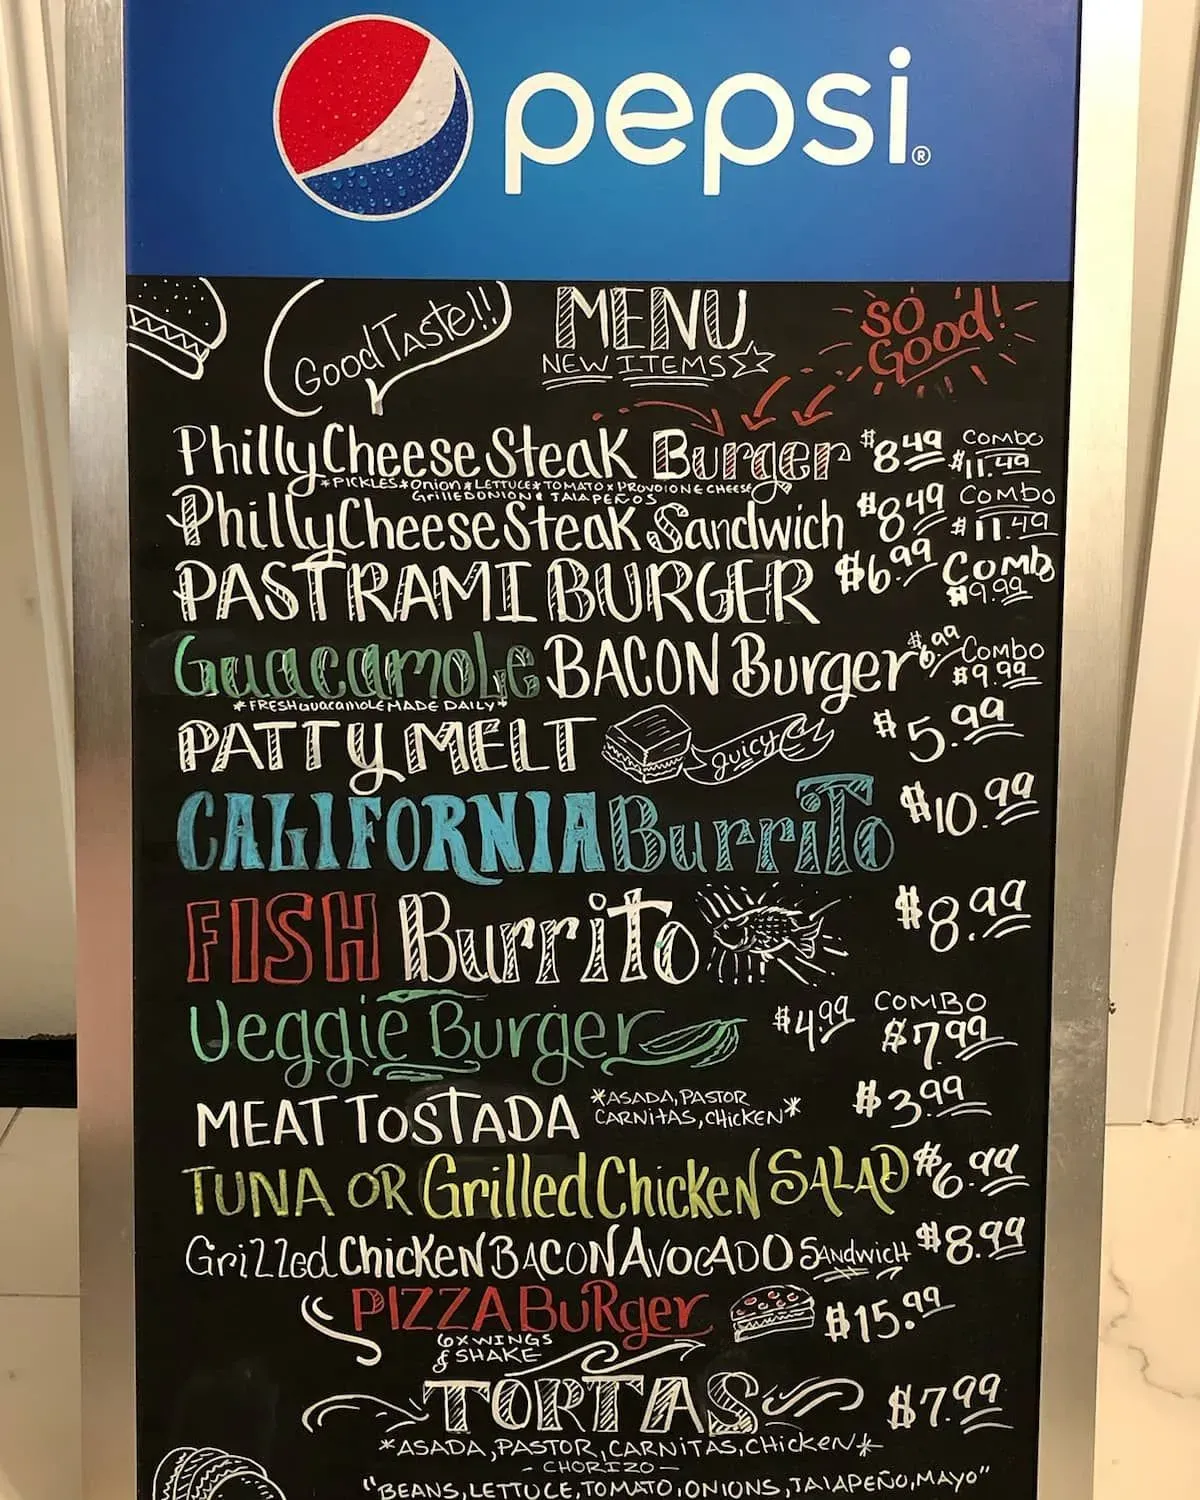 pepsi®
Good Taste!!
MENU
NEW ITEMS
SO Good!
Philly Cheese Steak Burger $8.49 COMBO $11.49
*PICKLES*Onion*LETTUCE*TOMATO*PROVOLONE CHEESE
GrillED ONION & JALAPEÑOS
Philly Cheese Steak Sandwich $8.49 COMBO $11.49
PASTRAMI BURGER $6.99 COMBO $9.99
Guacamole BACON Burger $6.99 COMBO $9.99
*FRESH Guacamole MADE DAILY*
PATTY MELT juicy $5.99
CALIFORNIA Burrito $10.99
FISH Burrito $8.99
Veggie Burger $4.99 COMBO $7.99
MEAT TOSTADA *ASADA, PASTOR $3.99
CARNITAS, CHICKEN*
TUNA OR Grilled Chicken SALAD $6.99
Grilled Chicken BACON AVOCADO SANDWICH $8.99
PIZZA BuRger $15.99
6X WINGS
& SHAKE
TORTAS $7.99
*ASADA, PASTOR, CARNITAS, CHICKEN*
- CHORIZO -
"BEANS, LETTUCE, TOMATO, ONIONS, JALAPEÑO, MAYO"